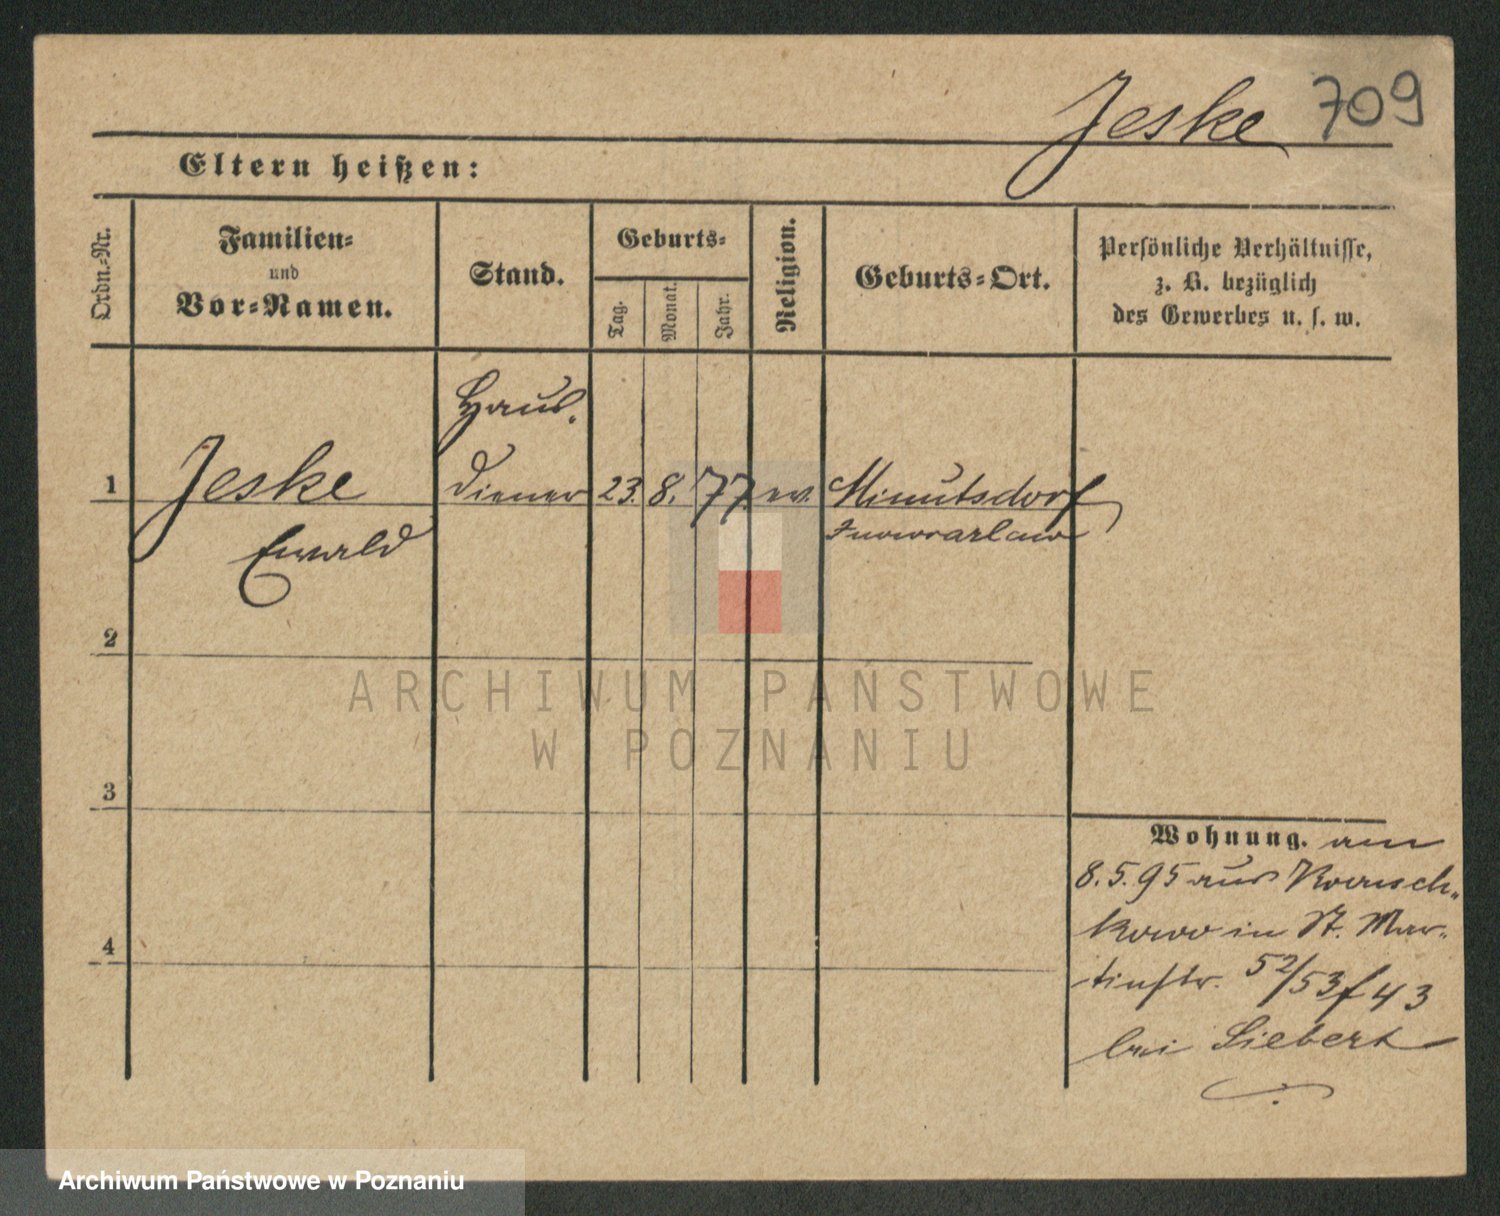 Jeske 709
Eltern heißen:
Ordn.-Nr.
Familien-
und
Vor-Namen.
Stand.
Geburts-
Tag.
Monat.
Jahr.
Religion.
Geburts-Ort.
Persönliche Verhältnisse,
z. B. bezüglich
des Gewerbes u. s. w.
Haus-
1 Jeske diener 23. 8. 77. ev. Minutsdorf
Ewald Inowrazlaw
2
3
4
Wohnung. am
8.5.95 aus
kowo in St. Mar-
tinstr. 52/53 f 43
bei Siebert
ARCHIWUM PAŃSTWOWE
W POZNANIU
Archiwum Państwowe w Poznaniu